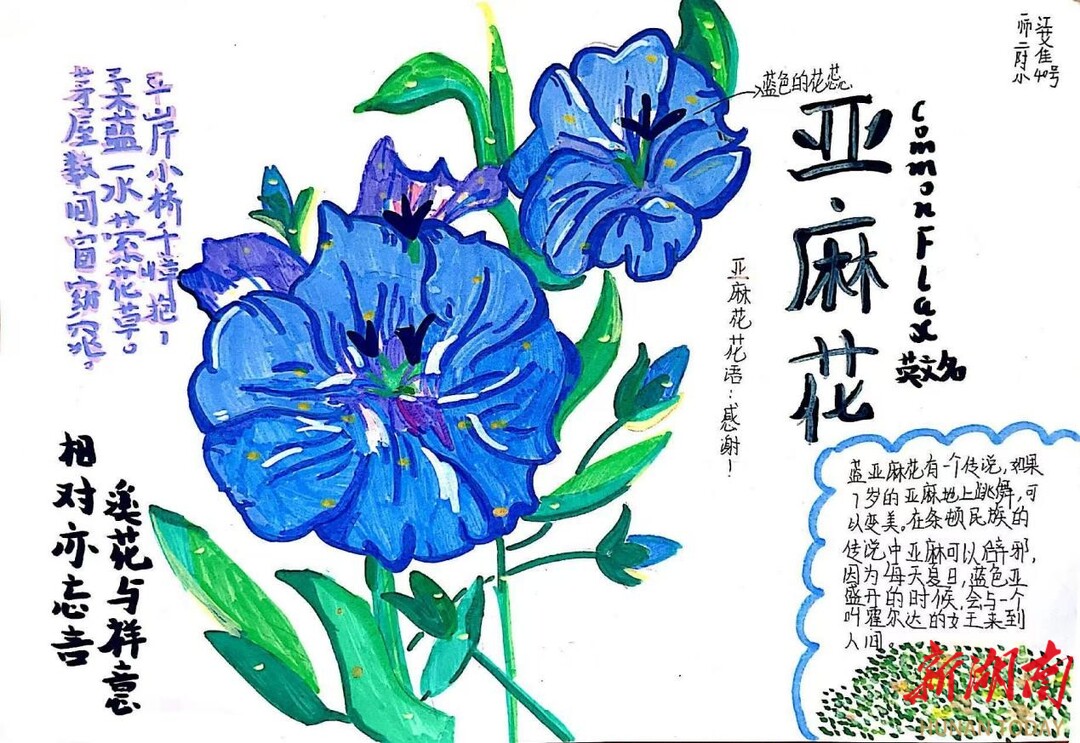 江艾佳40号
一师二附小
亚麻花
Common Flax
英文名
蓝色的花蕊
亚麻花花语：感谢！
平岸小桥千嶂抱，
柔蓝一水萦花草。
茅屋数间窗窈窕。
溪花与祥意
相对亦忘言
蓝亚麻花有一个传说，如果
7岁的亚麻地上跳舞，可
以变美，在条顿民族的
传说中亚麻可以辟邪，
因为每天夏日，蓝色亚
盛开的时候，会与一个
叫霍尔达的女王来到
人间。
新湖南
HUNAN TODAY